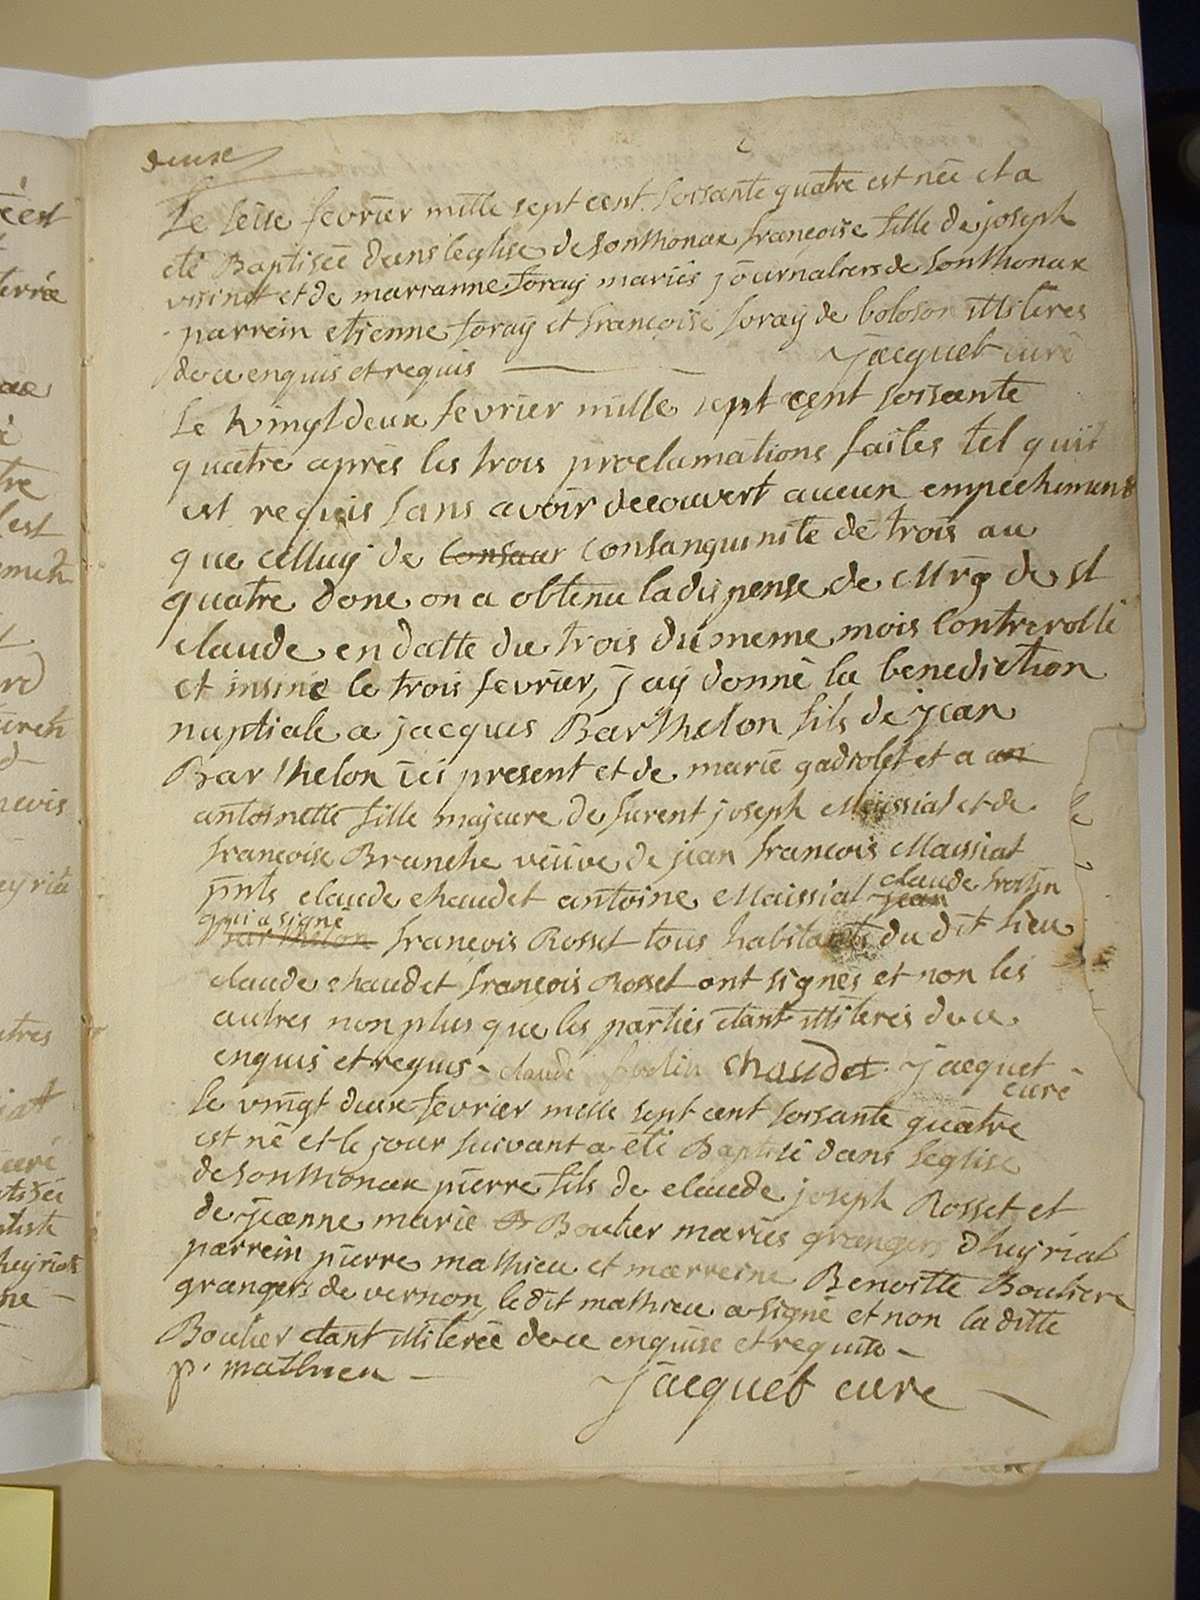 deuxe
Le seise fevrier mille sept cent soissante quatre est neé et a
eté Baptiseé dans leglise de sonthonax françoise fille de joseph
et de marianne foray mariés journaliers de sonthonax
parrein etienne foray et françoise foray de boloson illiteres
de ce enquis et requis jacquet curé
Le vingt deux fevrier mille sept cent soissante
quatre apres les trois proclamations faites tel quil
est requis sans avoir decouvert aucun empechement
que celluy de consanguinite de trois au
quatre donc on a obtenu la dispense de Mrg de st
claude en datte du trois du meme mois controrollé
et insiné le trois fevrier, jay donné la benediction
nuptiale a jacques Barthelon fils de jean
Barthelon ici present et de marie et a an
antoinette fille majeure de furent joseph Meyssiat et de
francoise Branche veuve de jean francois Maissiat
pnts claude chaudet antoine Maissiat jean claude
qui a signé
Barthelon francois Rosset tous habitants du dit lieu
claude chaudet francois Rosset ont signes et non les
autres non plus que les parties etant illiteres de ce
enquis et requis - claude chaudet jacquet
curé
le vingt deux fevrier mille sept cent soissante quatre
est né et le jour suivant a eté Baptisé dans leglise
de sonthonax pierre fils de claude joseph Rosset et
de jeanne marie Boulier mariés grangers dheyriat
parrein pierre mathieu et marreine Benoitte Bouliere
grangers de vernon, le dit mathieu a signé et non la ditte
Boulier etant illitereé de ce enquise et requise -
p. mathieu - jacquet cure